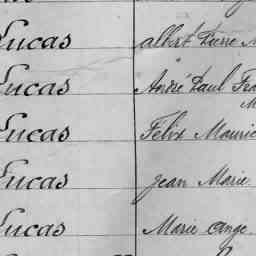 Lucas albert Pierre
Lucas André Paul
Lucas Felix Mauric
Lucas Jean Marie
Lucas Marie ange